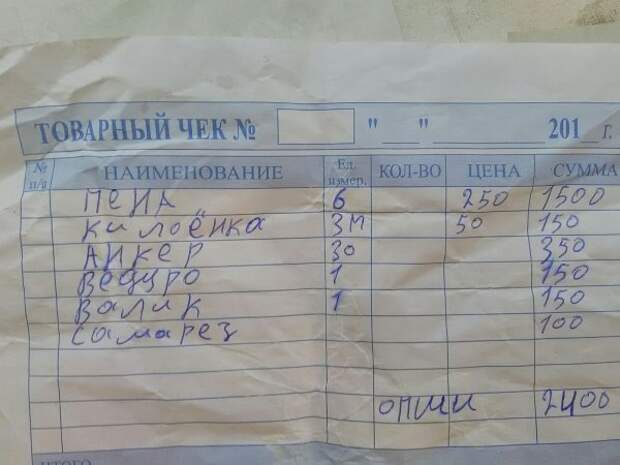 ТОВАРНЫЙ ЧЕК № " " 201 г.
№ п/п НАИМЕНОВАНИЕ Ед. измер. КОЛ-ВО ЦЕНА СУММА
ПЕНА 6 250 1500
килоёнка 3м 50 150
АНКЕР 30 350
ведуро 1 150
валик 1 150
саморез 100
опши 2400
ИТОГО